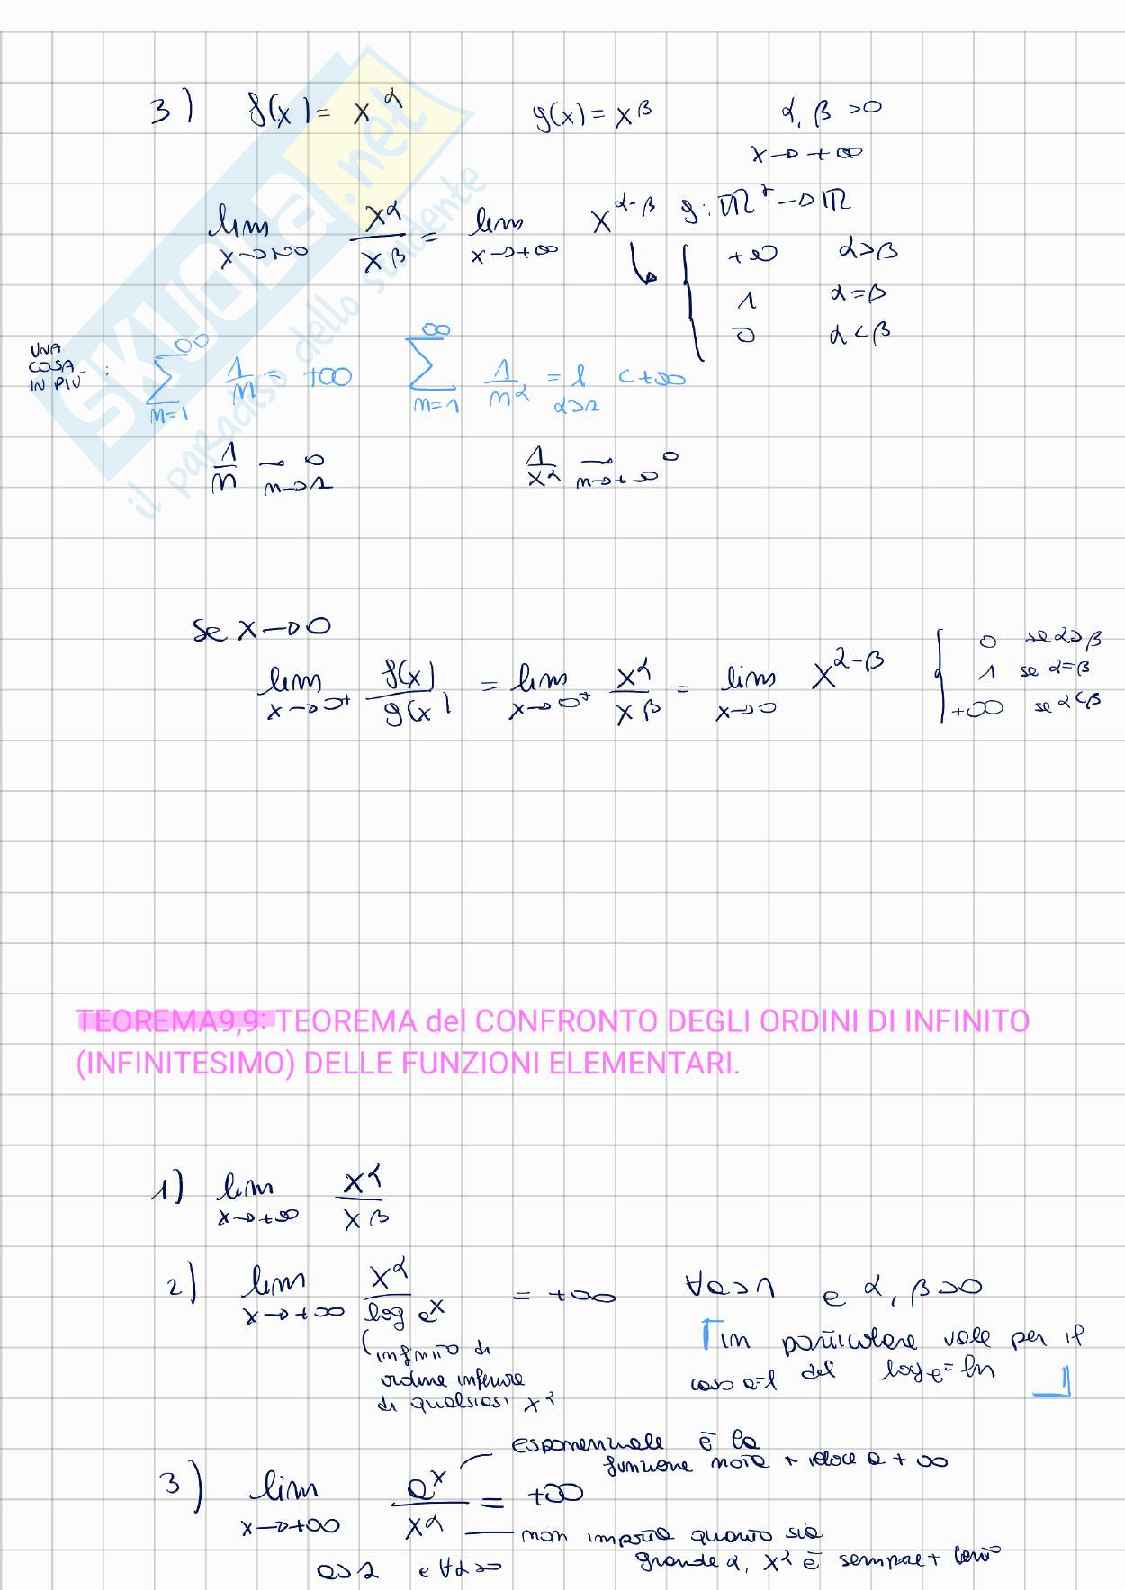 3) f(x) = x^α g(x) = x^β α, β > 0
x → +∞
lim x→+∞ x^α / x^β = lim x→+∞ x^(α-β) g: ℝ⁺ → ℝ
{ +∞ α>β
1 α=β
0 α<β
UNA COSA IN PIÙ :
∑ n=1 ∞ 1/n = +∞ ∑ n=1 ∞ 1/n^α = l < +∞ α>1
1/n → 0 n→1 1/x^α → 0 n→+∞
Se x → 0
lim x→0⁺ f(x)/g(x) = lim x→0⁺ x^α / x^β = lim x→0 x^(α-β) { 0 se α>β
1 se α=β
+∞ se α<β
TEOREMA9,9: TEOREMA del CONFRONTO DEGLI ORDINI DI INFINITO
(INFINITESIMO) DELLE FUNZIONI ELEMENTARI.
1) lim x→+∞ x^α / x^β
2) lim x→+∞ x^α / log e^x = +∞ ∀a>1 e α, β>0
infinito di
ordine inferiore
di qualsiasi x^α
in particolare vale per il
caso a=l del log e = ln
3) lim x→+∞ a^x / x^α = +∞
esponenziale è la
funzione + veloce a +∞
non importa quanto sia
grande α, x^α è sempre + lento
a>1 e ∀α>0
SKUOLA.net
il paradiso dello studente